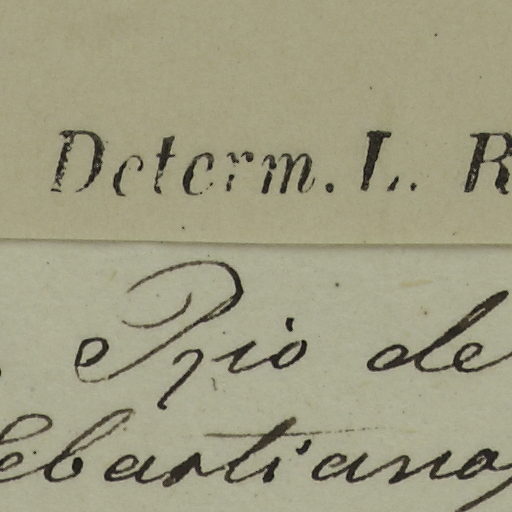 Determ. L. R
Rio de
ebastiano